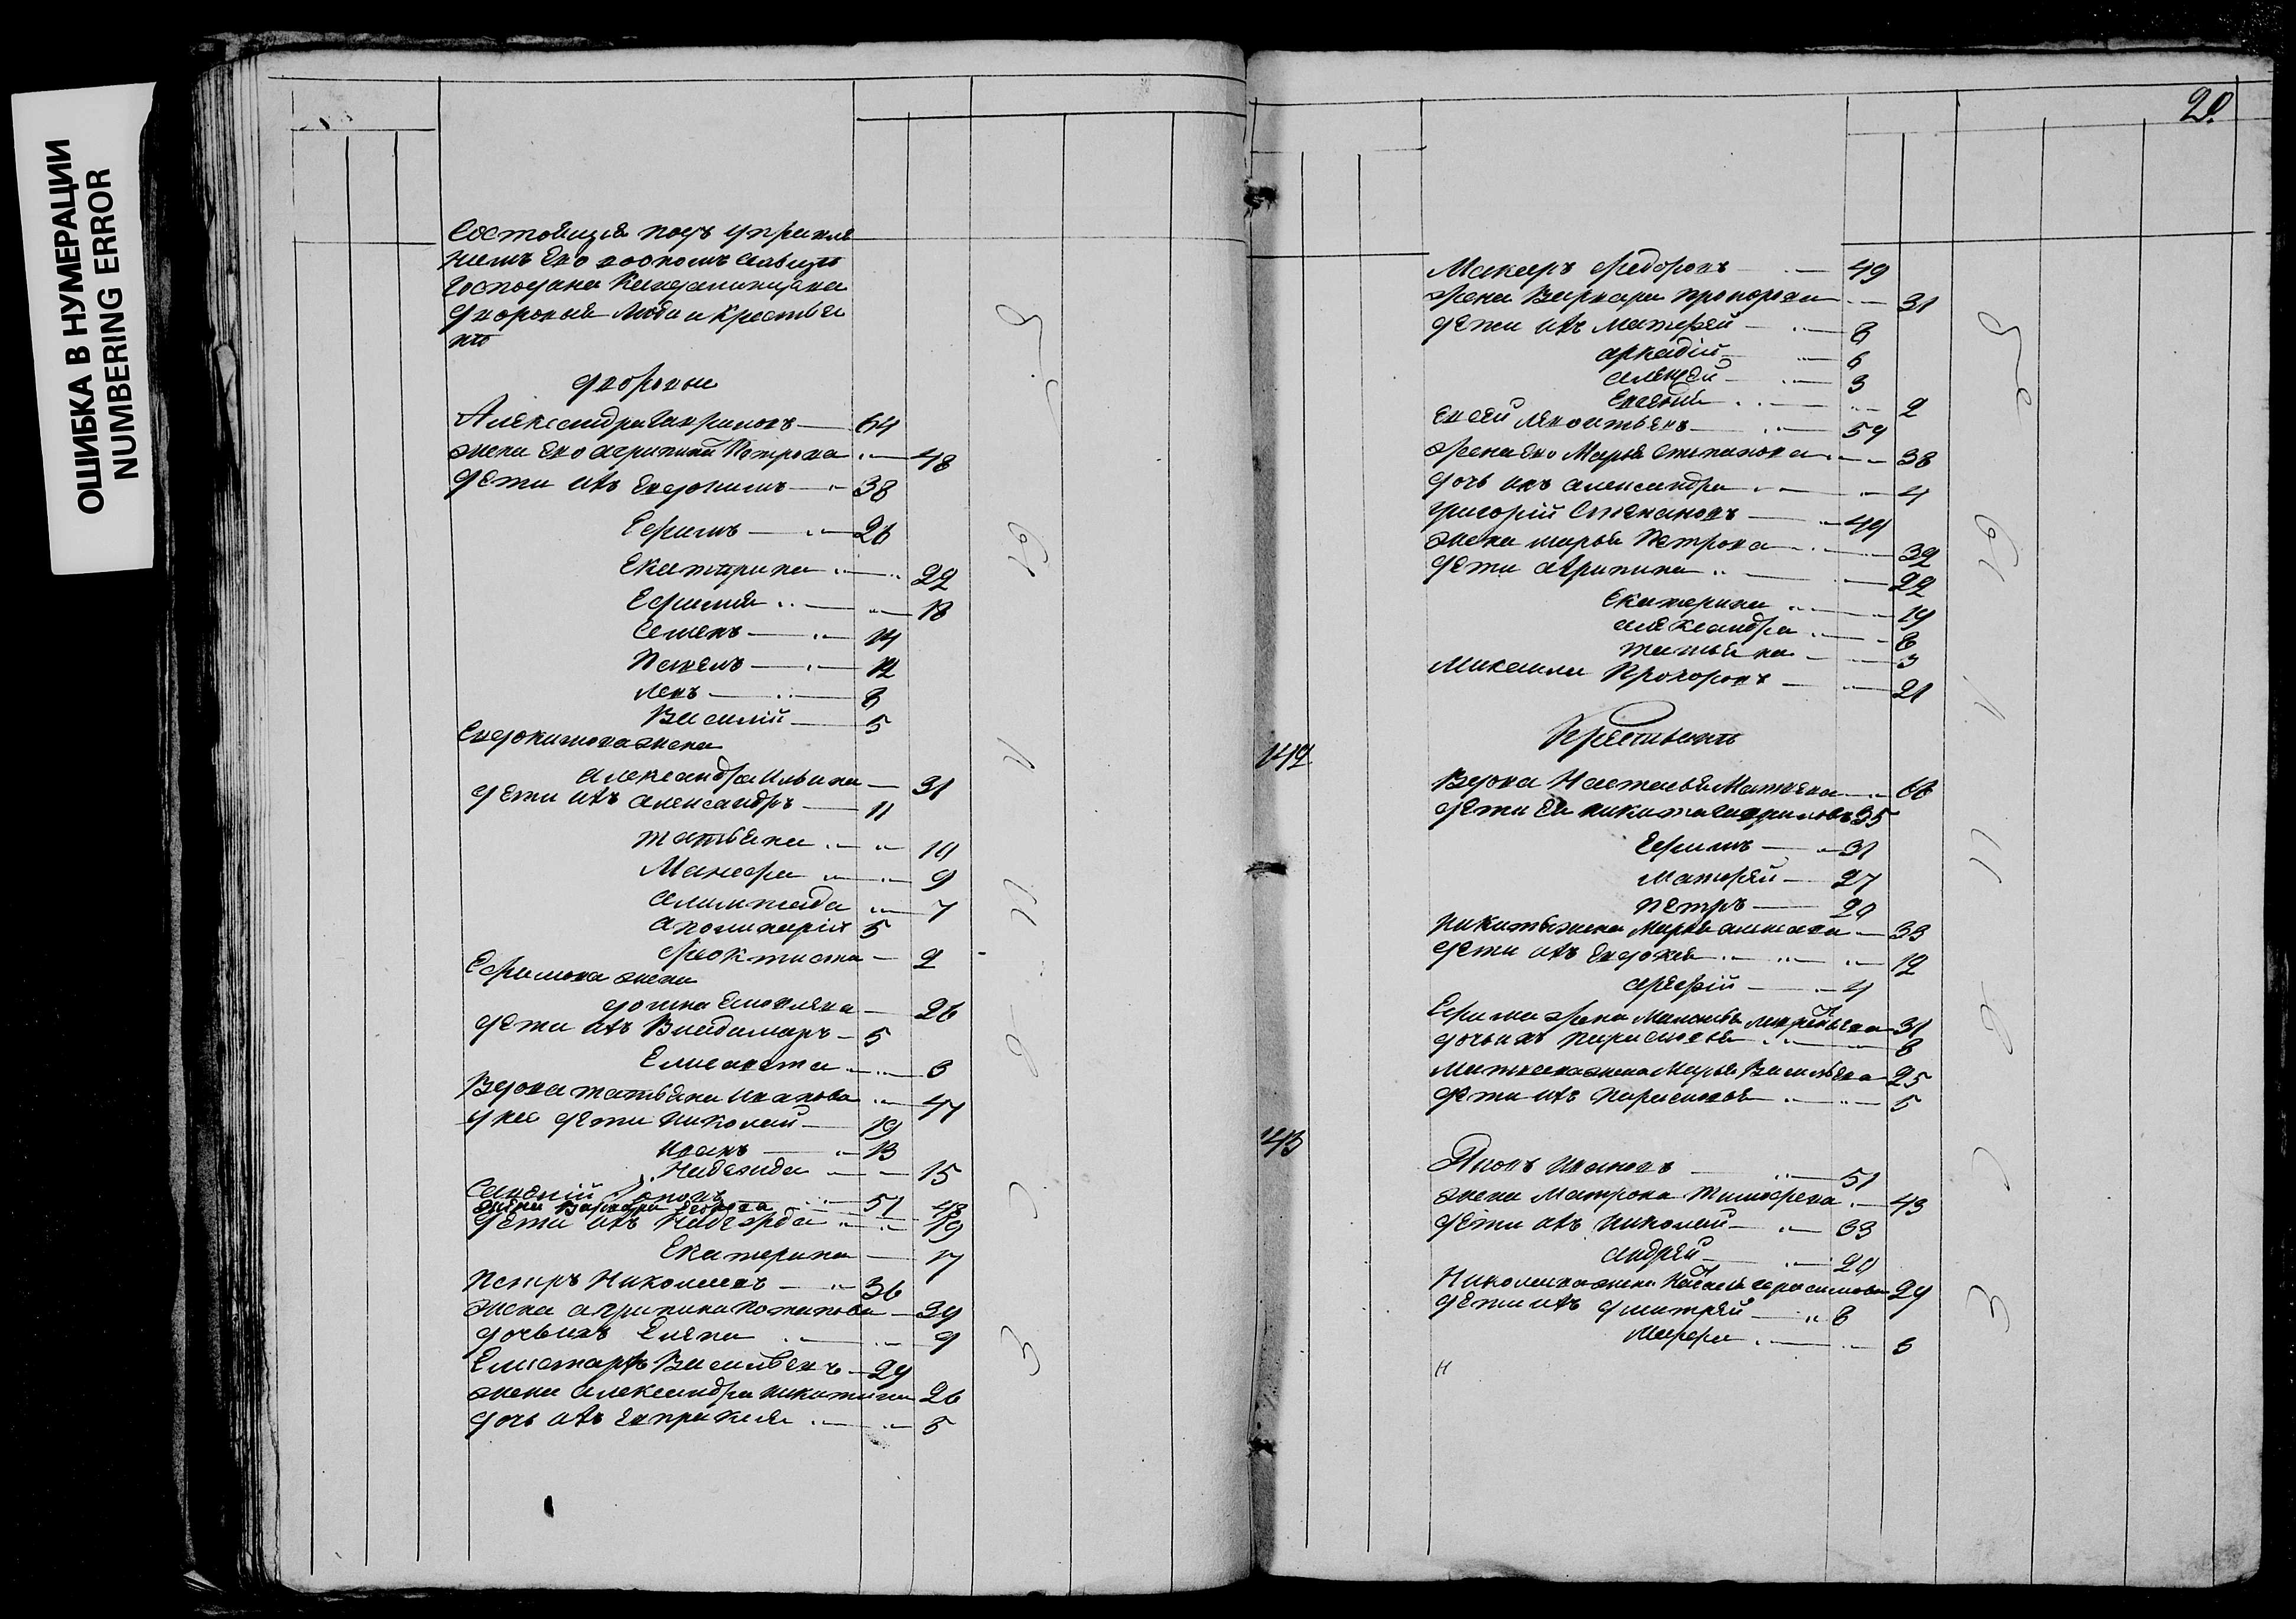 ОШИБКА В НУМЕРАЦИИ
NUMBERING ERROR
Состоящія подъ управле
госпожи
дворовыя люди и крестья
не
дворовыи
Александръ Гавриловъ 64
жена его агрипина Петрова 48
дети ихъ Евдокимъ 38
Ефимъ 26
Екатерина 22
Ефимия 18
Семенъ 14
Павелъ 12
левъ 8
Василій 5
Евдокимова жена
александра ильина 31
дети ихъ александръ 11
татьяна 10
Манефа 9
алимпиада 7
аполинарій 5
феоктиста 2
Ефимова жена
домна Емельяна 26
дети ихъ Владимиръ 5
Елисавета 3
Вдова татьяна иванова 47
у нее дети николай 19
иванъ 13
Надежда 15
51
жена Варвара 48
дети ихъ Надежда 19
Екатерина 17
Петръ Николаевъ 36
жена агрипина потапова 39
дочь ихъ Елена 9
Елистархъ Васильевъ 29
жена александра никитина 26
дочь ихъ Евпраксия 5
20.
Макаръ федоровъ 49
жена Варвара прохорова 31
дети ихъ Матфей 8
аркадій 6
алексей 3
Евсевия 2
Евсей леонтьевъ 59
жена его Марья степанова 38
дочь ихъ александра 4
григорій Степановъ 49
жена марья Петрова 39
дети агрипина 22
Екатерина 19
александра 8
татьяна 3
Михаила Прохоровъ 21
Крестьяне
142
Вдова Настасья Матвева 66
дети ея никита гавриловъ 35
Ефимъ 31
Матфей 27
петръ 20
никиты жена Марья 33
дети ихъ Евдокия 12
арефій 4
Ефима жена Маланья 31
дочь ихъ парасковья 8
Матвеева жена Марья Васильева 25
дети ихъ парасковья 5
143
Яковъ ивановъ 51
жена Матрона тимофеева 43
дети ихъ николай 33
андрей 20
Николаева жена Наталья герасимова 29
дети ихъ дмитрей 8
Марфа 5